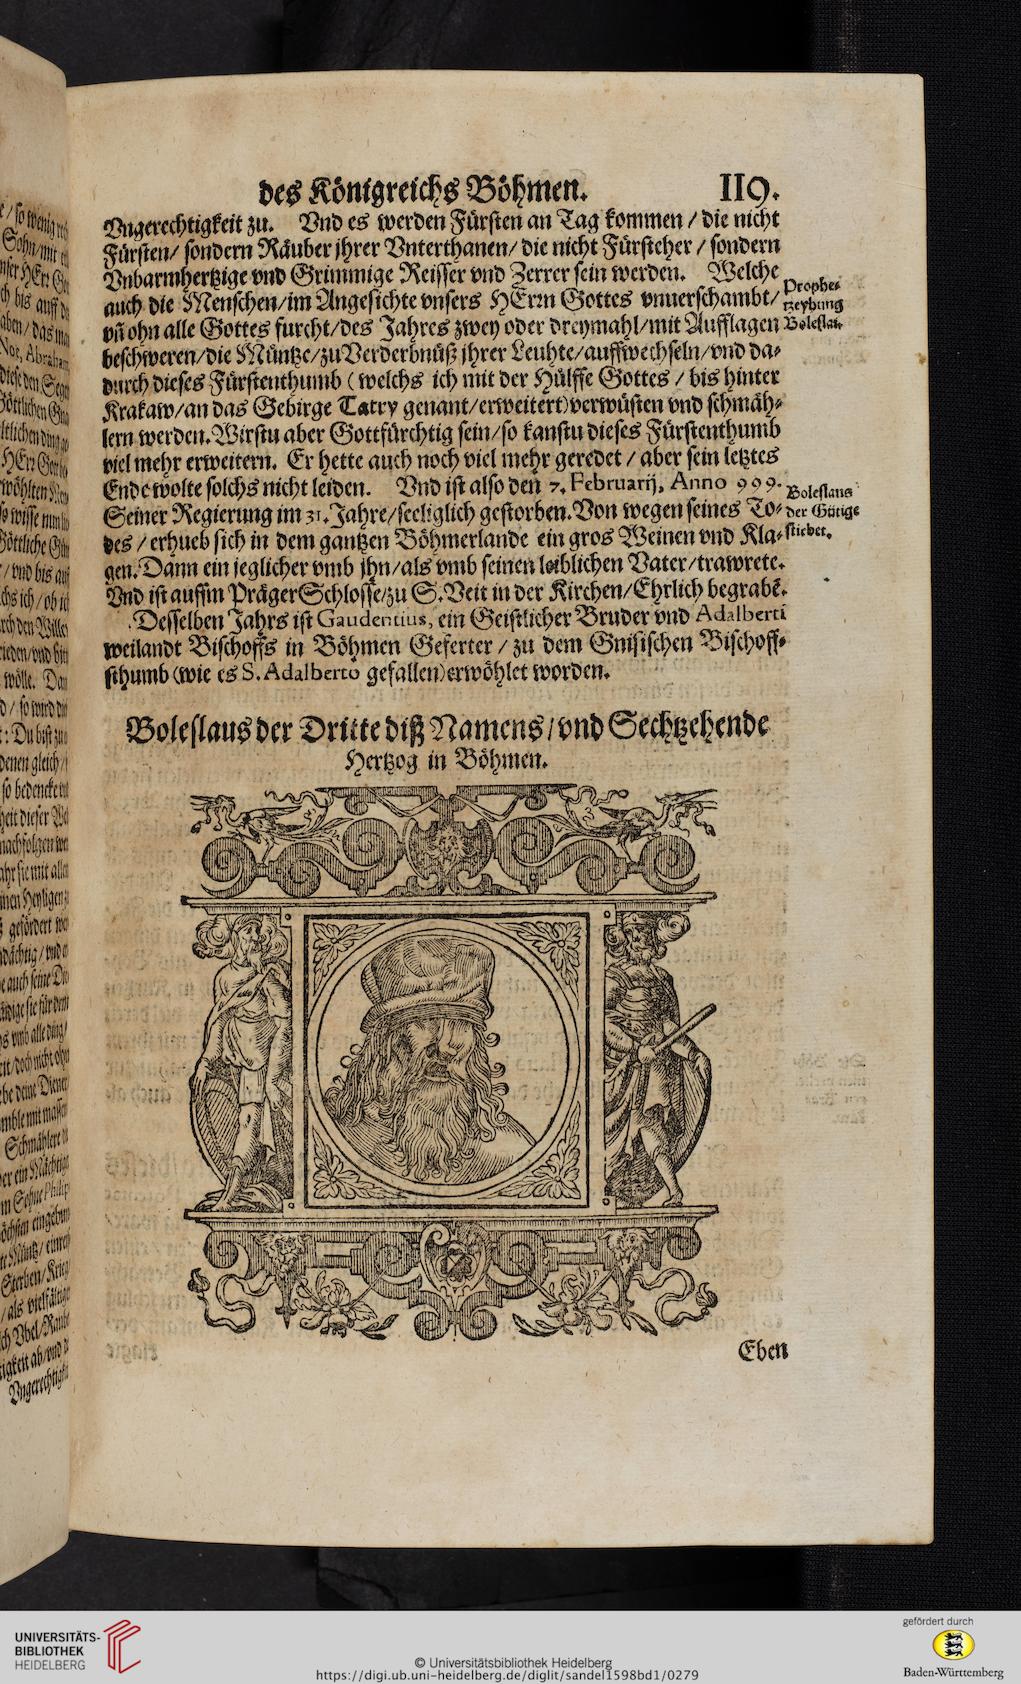 des Königreichs Böhmen. 119.
Vngerechtigkeit zu. Vnd es werden Fürsten an Tag kommen / die nicht
Fürsten/ sondern Räuber jhrer Vnterthanen/ die nicht Fürsteher / sondern
Vnbarmhertzige vnd Grimmige Reisser vnd Zerrer sein werden. Welche
auch die Menschen/im Angesichte vnsers HErrn Gottes vnuerschambt/
vñ ohn alle Gottes furcht/des Jahres zwey oder dreymahl/mit Aufflagen
beschweren/die Müntze/zu Verderbnüß jhrer Leuhte/auffwechseln/vnd da-
durch dieses Fürstenthumb (welchs ich mit der Hülffe Gottes / bis hinter
Krakaw/an das Gebirge Tatry genant/erweitert)verwüsten vnd schmäh-
lern werden. Wirstu aber Gottfürchtig sein/so kanstu dieses Fürstenthumb
viel mehr erweitern. Er hette auch noch viel mehr geredet / aber sein letztes
Ende wolte solchs nicht leiden. Vnd ist also den 7. Februarij, Anno 999.
Seiner Regierung im 31. Jahre/seeliglich gestorben. Von wegen seines To-
des / erhueb sich in dem gantzen Böhmerlande ein gros Weinen vnd Kla-
gen. Dann ein jeglicher vmb jhn/als vmb seinen leiblichen Vater/trawrete.
Vnd ist auffm PrägerSchlosse/zu S. Veit in der Kirchen/Ehrlich begrabē.
Desselben Jahrs ist Gaudentius, ein Geistlicher Bruder vnd Adalberti
weilandt Bischoffs in Böhmen Geferter / zu dem Gnisischen Bischoff-
sthumb (wie es S. Adalberto gefallen) erwöhlet worden.
Prophe-
tzeyhung
Boleslai.
Boleslaus
der Gütige
stirbet.
Boleslaus der Dritte diß Namens / vnd Sechtzehende
Hertzog in Böhmen.
Eben
UNIVERSITÄTS-
BIBLIOTHEK
HEIDELBERG
© Universitätsbibliothek Heidelberg
https://digi.ub.uni-heidelberg.de/diglit/sandel1598bd1/0279
gefördert durch
Baden-Württemberg